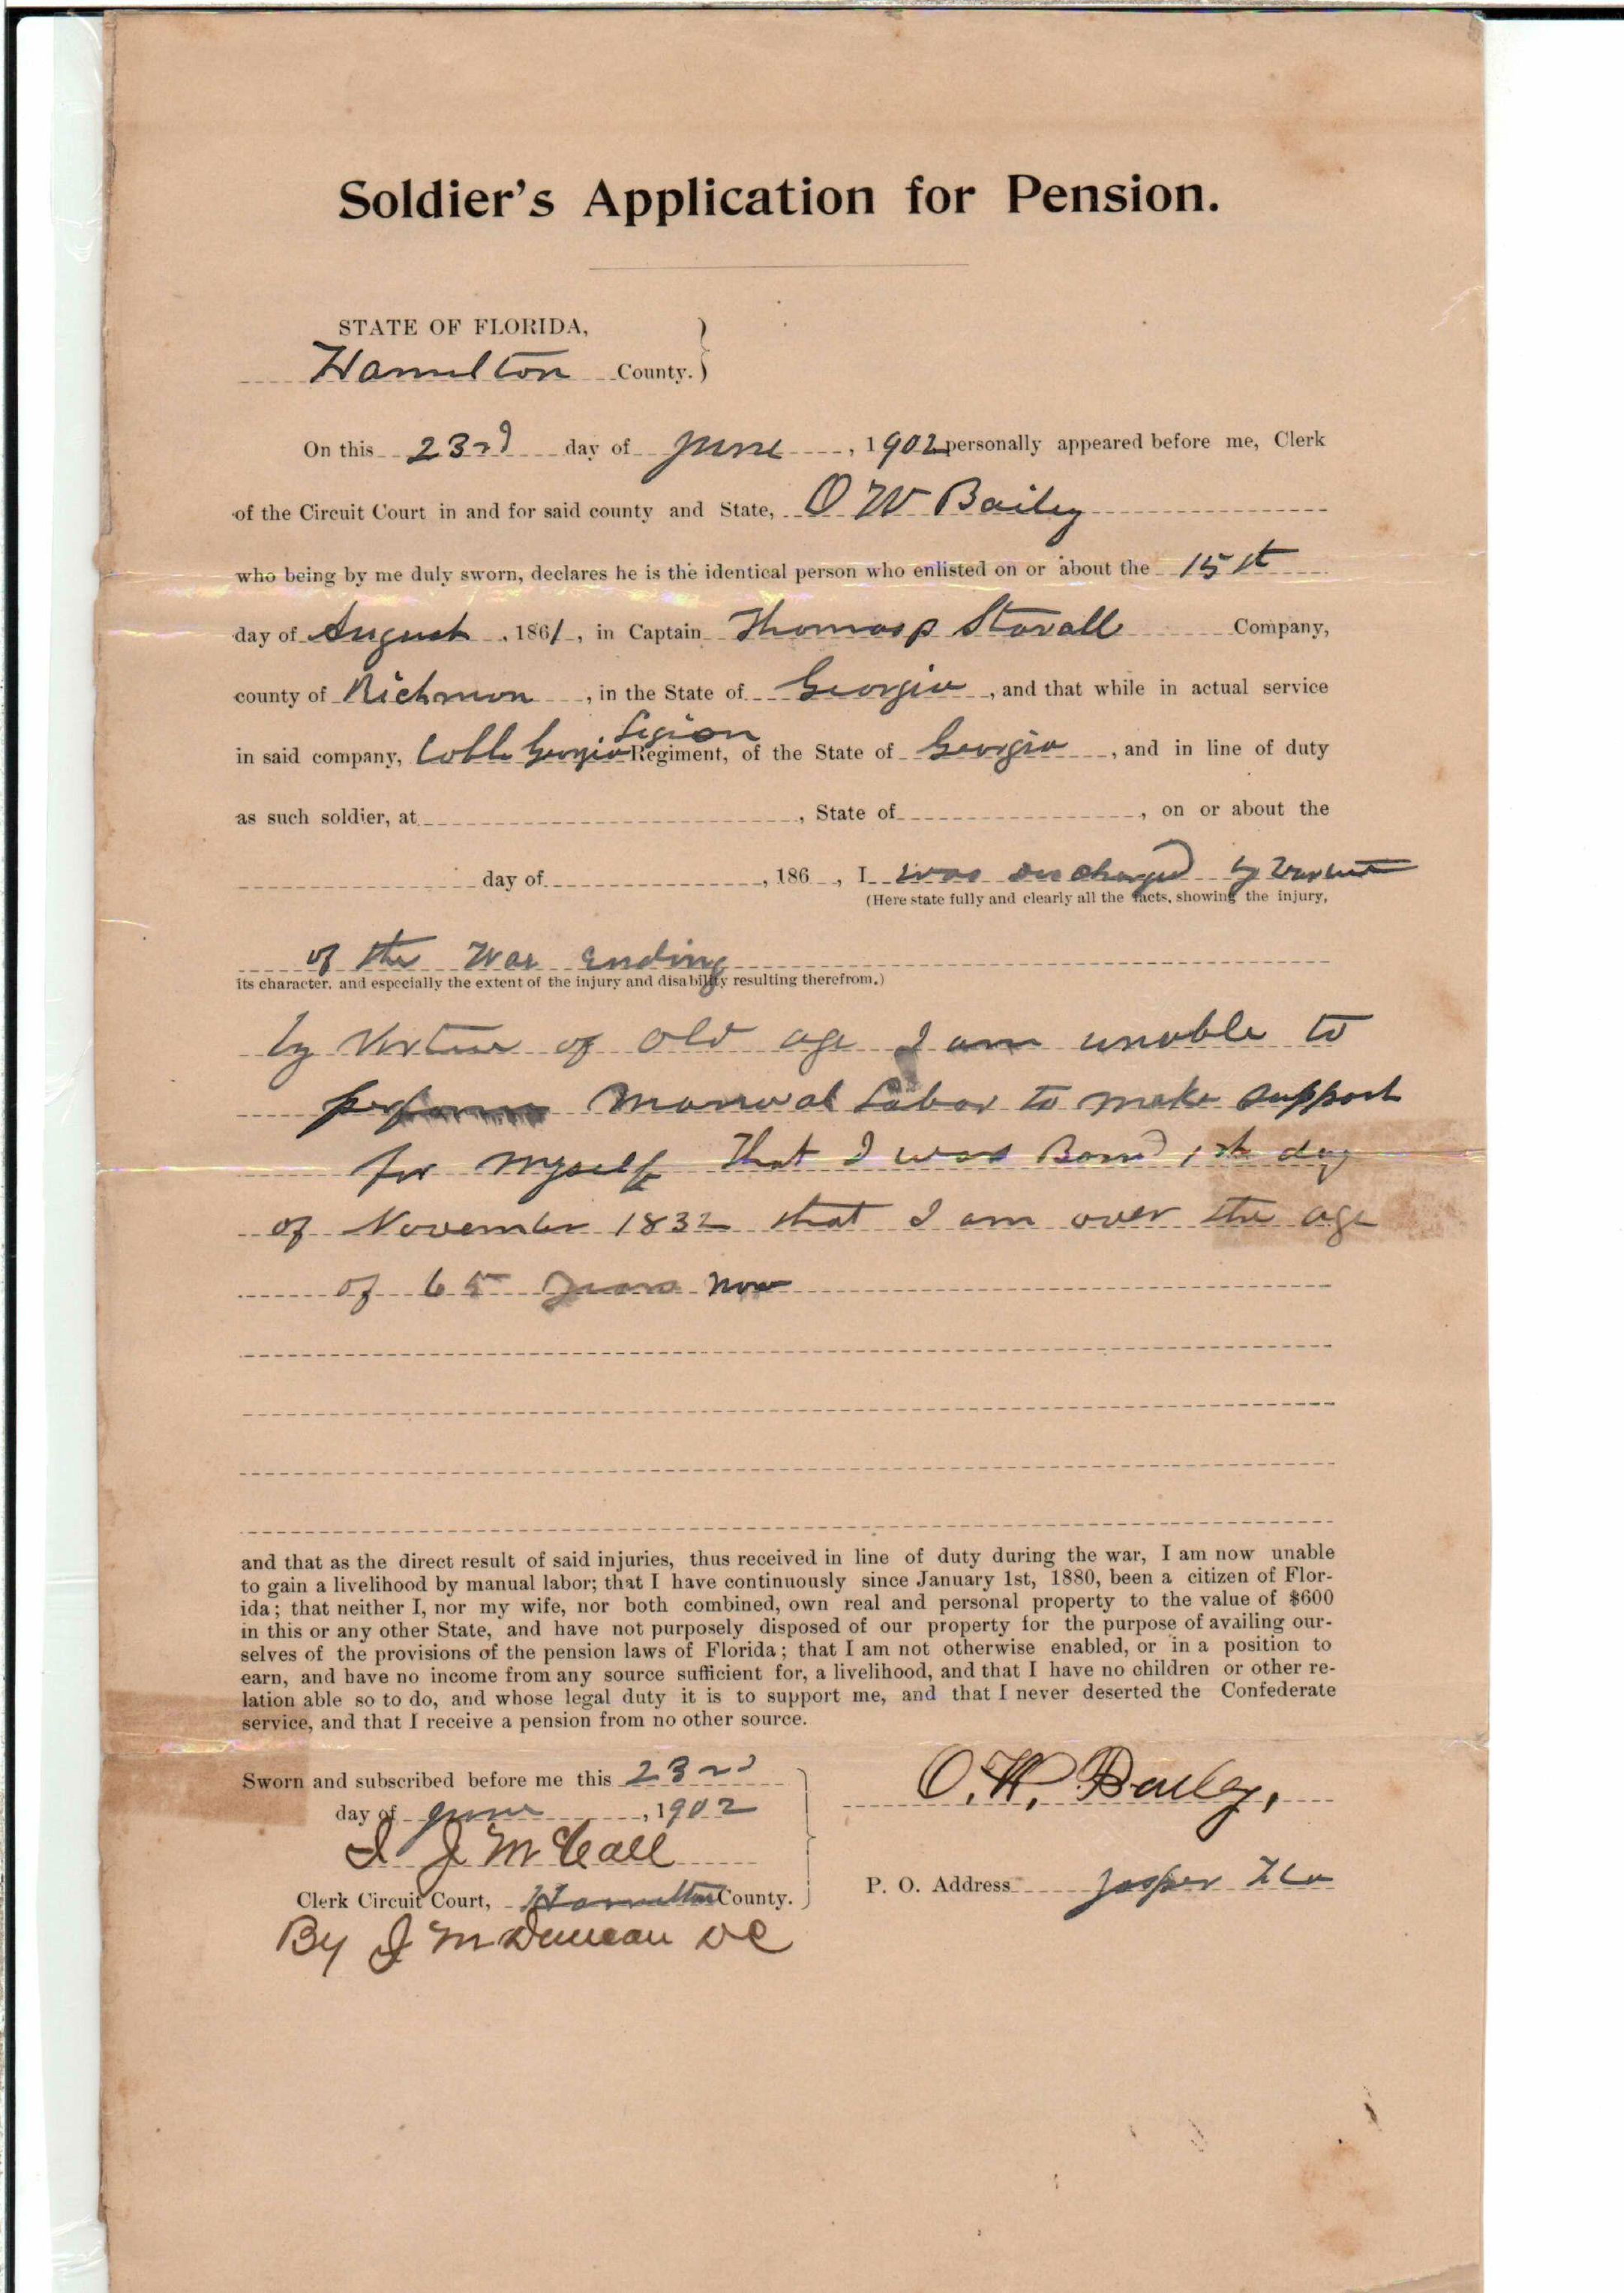 Soldier's Application for Pension.
STATE OF FLORIDA,
Hamilton County.
On this 23rd day of June, 1902 personally appeared before me, Clerk
of the Circuit Court in and for said county and State, O W Bailey
who being by me duly sworn, declares he is the identical person who enlisted on or about the 15st
day of August, 1861, in Captain Thomas p Stovall Company,
county of Richmon, in the State of Georgia, and that while in actual service
Legion
in said company, Cobb Georgia Regiment, of the State of Georgia, and in line of duty
as such soldier, at, State of, on or about the
day of, 186, I was discharged by
(Here state fully and clearly all the facts, showing the injury,
of the War Ending
its character, and especially the extent of the injury and disability resulting therefrom.)
by Vertue of old age I am unable to
perform Manual Labor to make support
for myself That I was Born 1st day
of November 1832 that I am over the age
of 65 years now
and that as the direct result of said injuries, thus received in line of duty during the war, I am now unable
to gain a livelihood by manual labor; that I have continuously since January 1st, 1880, been a citizen of Flor-
ida; that neither I, nor my wife, nor both combined, own real and personal property to the value of $600
in this or any other State, and have not purposely disposed of our property for the purpose of availing our-
selves of the provisions of the pension laws of Florida; that I am not otherwise enabled, or in a position to
earn, and have no income from any source sufficient for, a livelihood, and that I have no children or other re-
lation able so to do, and whose legal duty it is to support me, and that I never deserted the Confederate
service, and that I receive a pension from no other source.
Sworn and subscribed before me this 23rd
day of June, 1902
O. W. Bailey,
I J McCall
P. O. Address Jasper Fla
Clerk Circuit Court, Hamilton County.
By J M Duncan DC